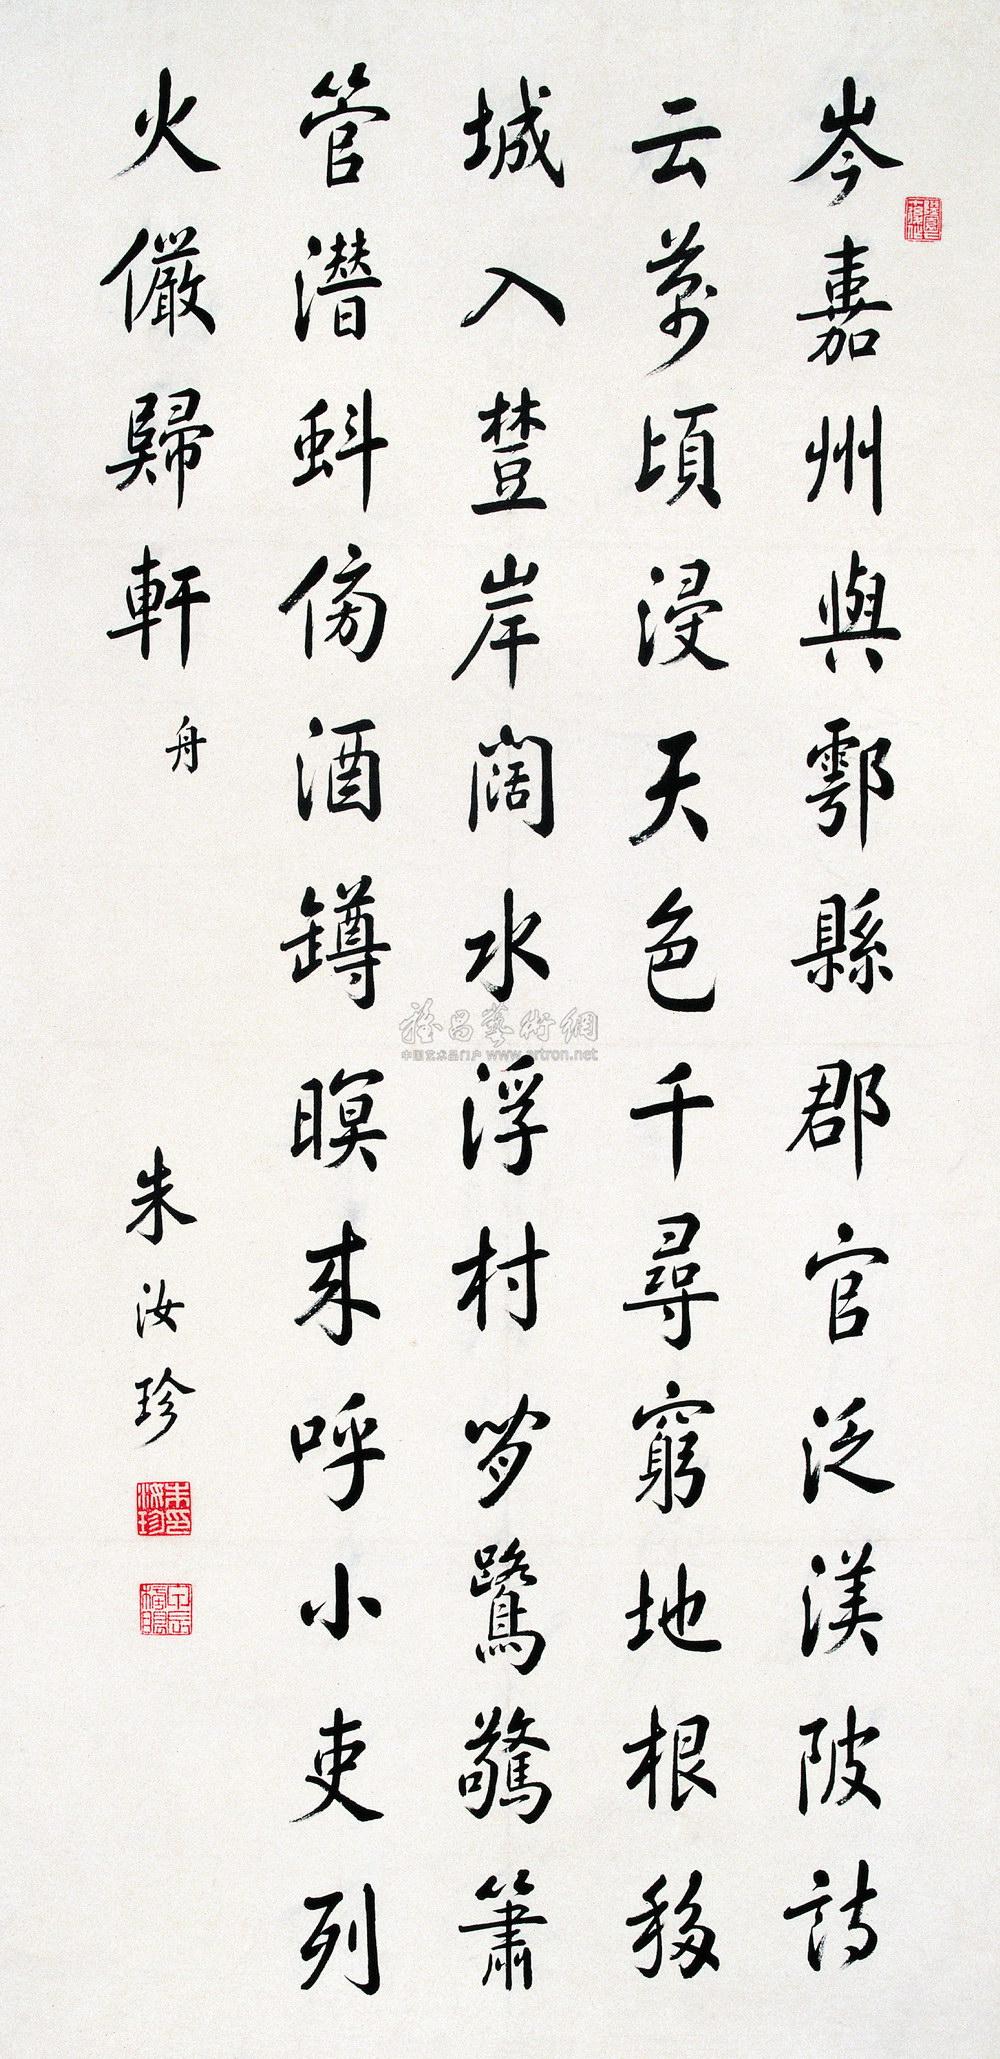 岑嘉州與鄠縣郡官泛渼陂詩
云萬頃浸天色千尋窮地根移
城入埜岸闊水浮村閒鷺驚簫
管潛蚪傍酒罇暝來呼小吏列
火儼歸軒舟
朱汝珍
雅昌藝術網
中国艺术品门户 www.artron.net
朱汝珍印